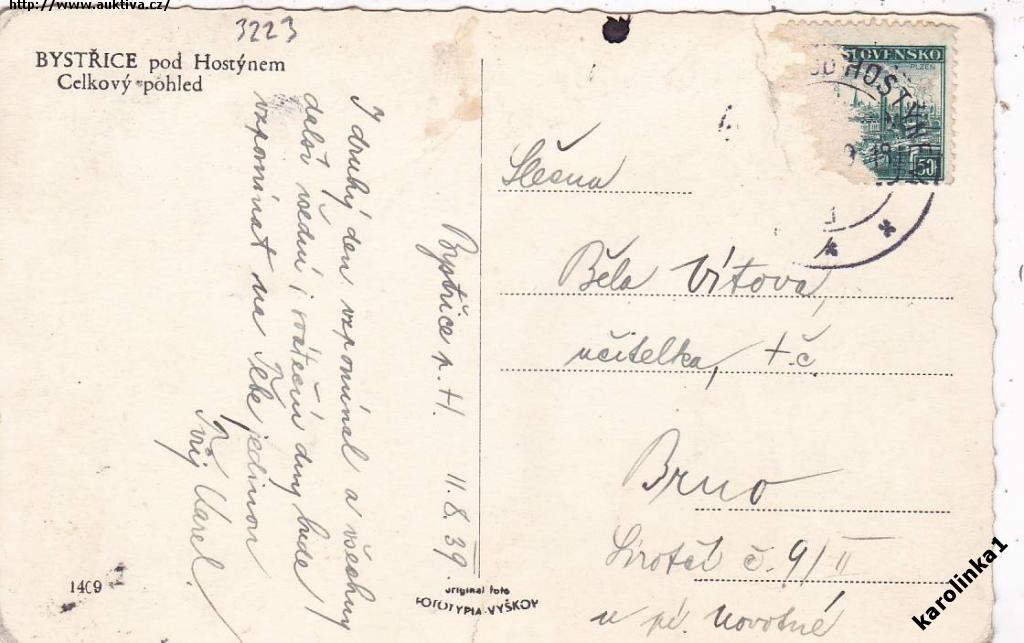 http://www.auktiva.cz/
3223
BYSTŘICE pod Hostýnem
Celkový pohled
I druhý den vzpomínal a všechny
další všední i sváteční dny bude
vzpomínat na Tebe jedinou
Tvůj Karel.
Bystřice p. H. 11.8.39.
1409
original foto
FOTOTYPIA-VYŠKOV
SLOVENSKO
PLZEŇ
50
OD HOSTÝN
Slečna
Běla Vítova,
učitelka, t.č.
Brno
Sirotčí č. 9/II
u pí Novotné
karolinka1